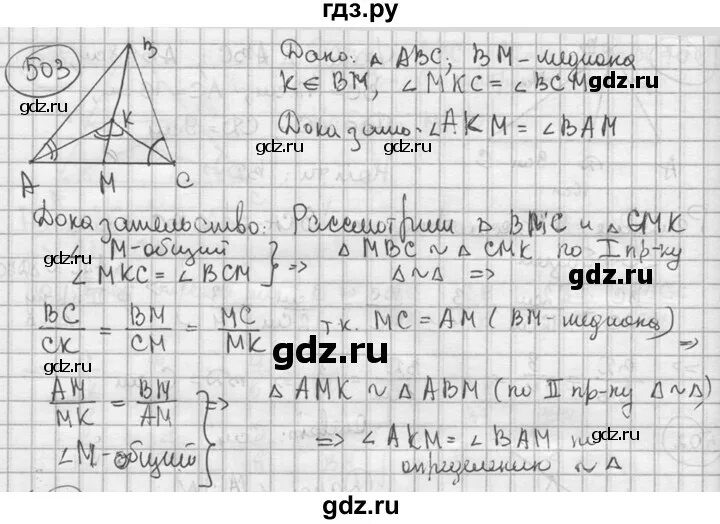 гдз.ру
503
B
K
A
M
C
Дано: △ ABC, BM - медиана
K ∈ BM, ∠MKC = ∠BCM
gdz.ru
gdz.ru
Доказать: ∠AKM = ∠BAM
gdz.ru
gdz.ru
Доказательство: Рассмотрим △ BMC и △ CMK
∠ M - общий
∠ MKC = ∠ BCM } =>
△ MBC ~ △ CMK по I пр-ку
△ ~ △ =>
gdz.ru
gdz.ru
BC/CK = BM/CM = MC/MK
т.к. MC = AM (BM - медиана) =>
gdz.ru
AM/MK = BM/AM
∠M - общий } =>
△ AMK ~ △ ABM (по II пр-ку △~△)
=> ∠ AKM = ∠ BAM по
определению ~ △
gdz.ru
gdz.ru
gdz.ru